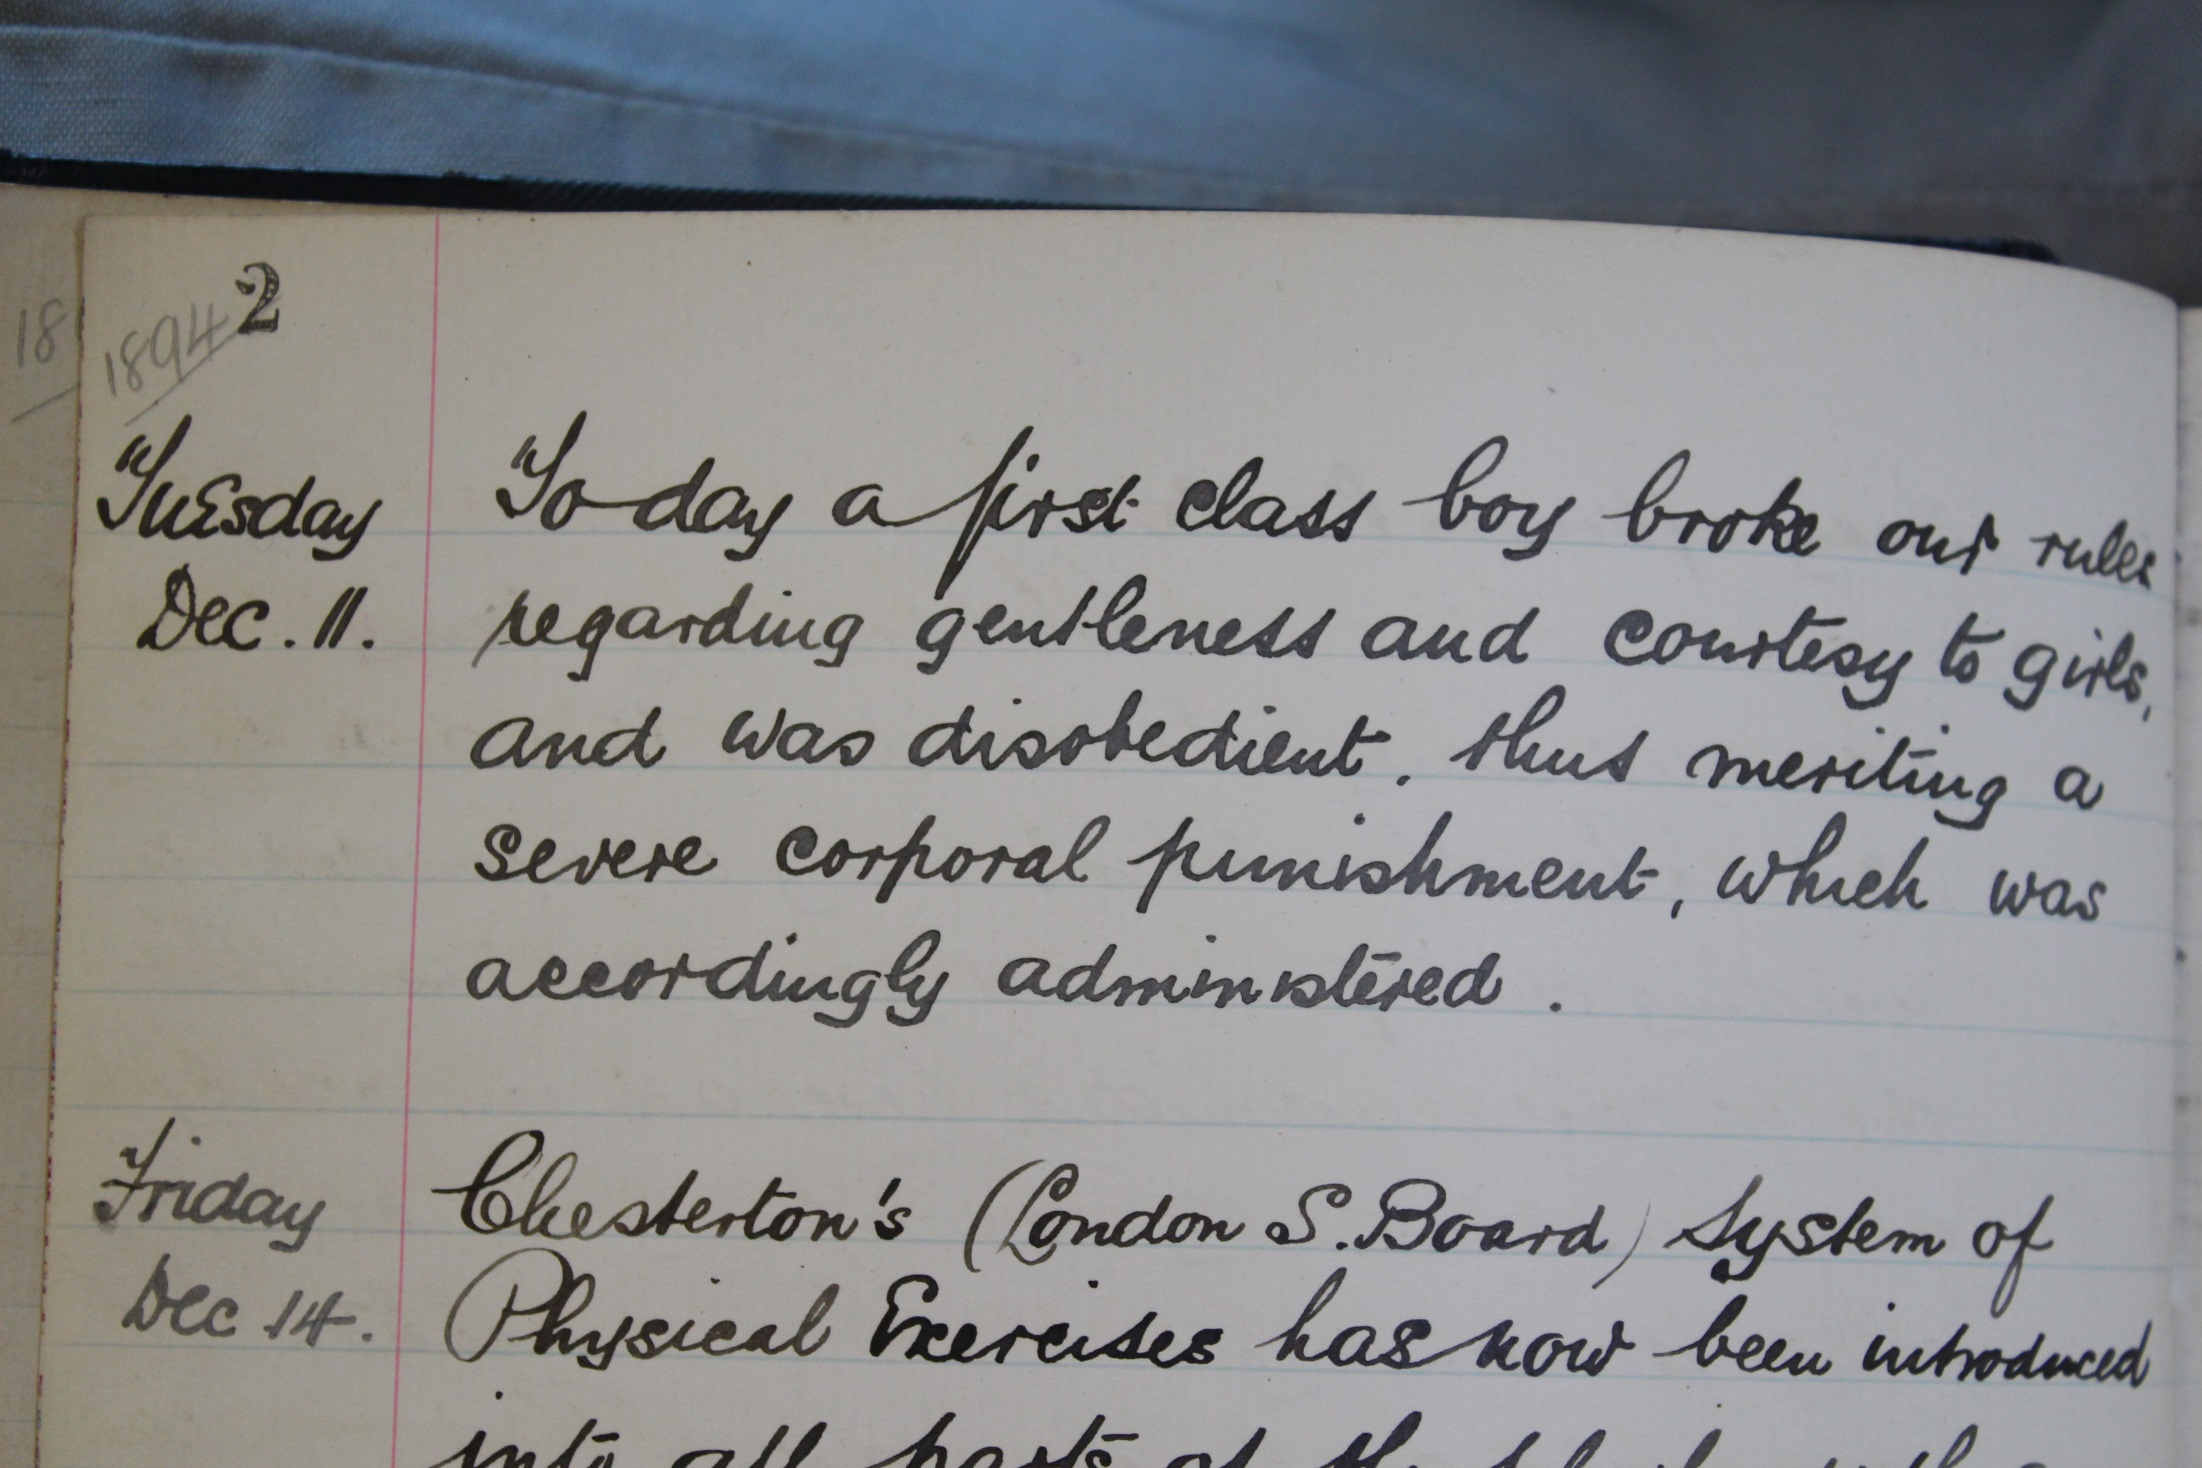 2
18
1894
Tuesday
Dec. 11.
To day a first class boy broke our rules
regarding gentleness and courtesy to girls,
and was disobedient, thus meriting a
severe corporal punishment, which was
accordingly administered.
Friday
Dec 14.
Chesterton's (London S. Board) System of
Physical Exercises has now been introduced
into all parts of the